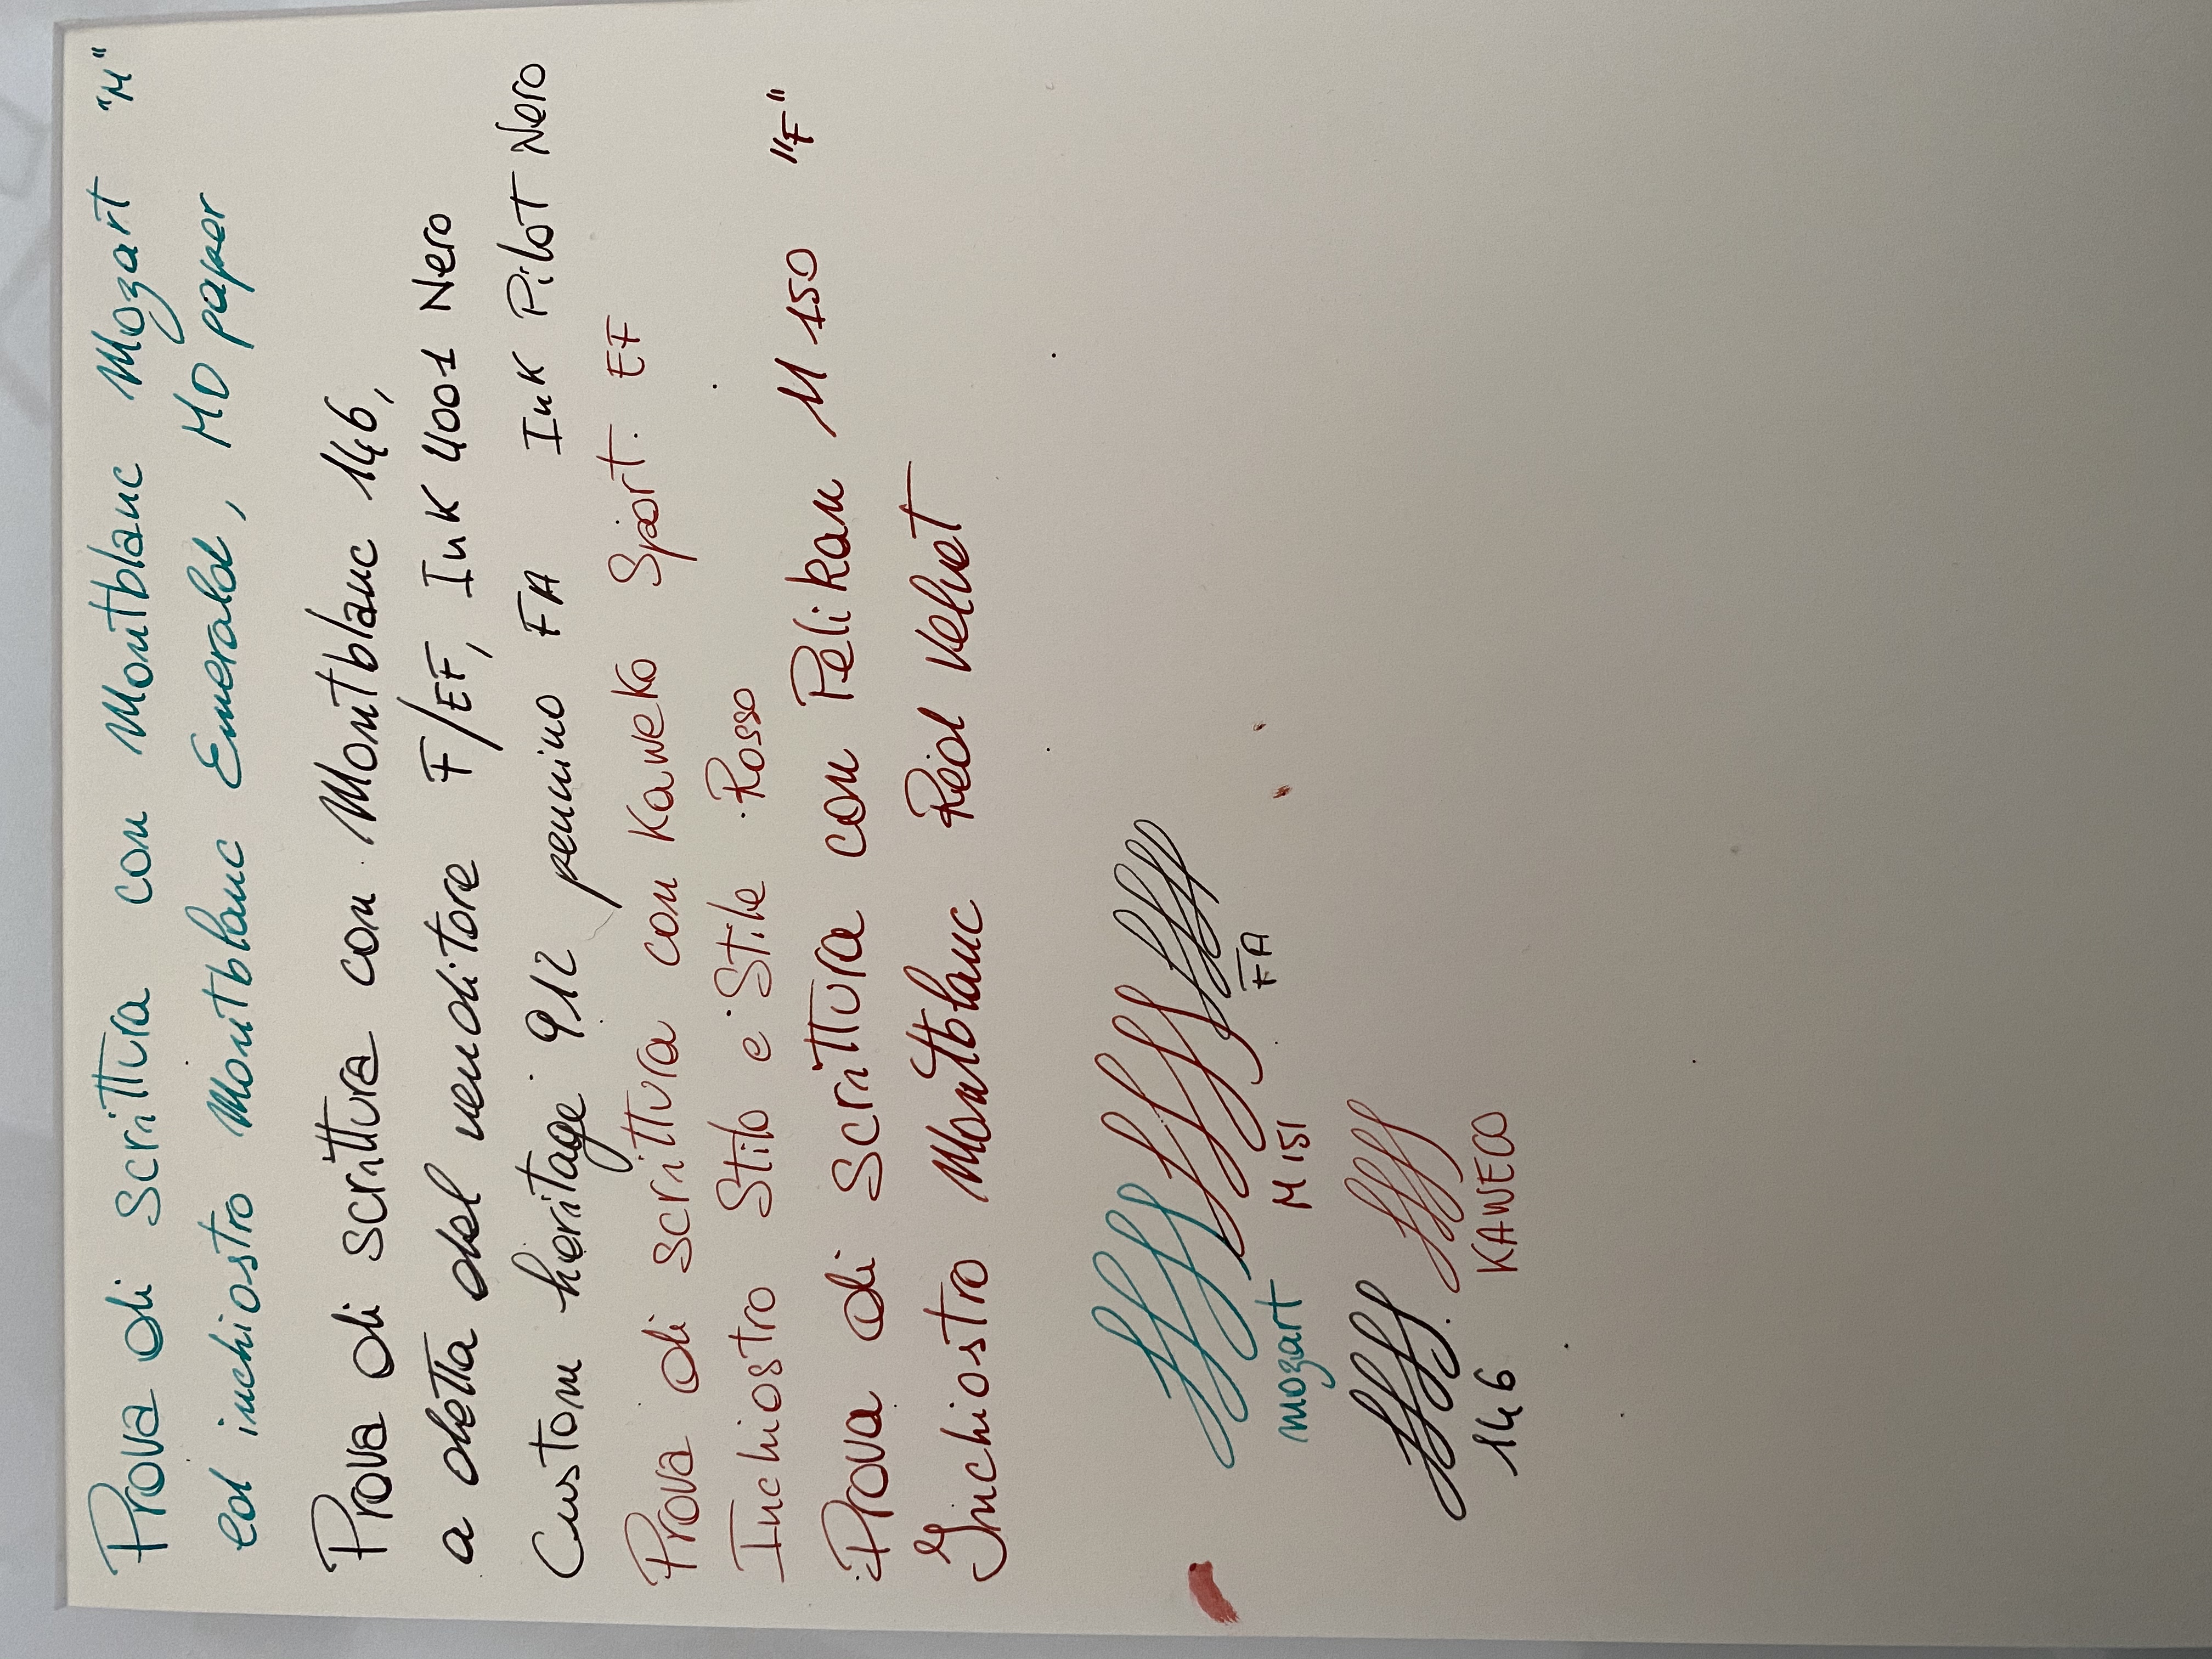 Prova di scrittura con Montblanc Mozart "M"
ed inchiostro Montblanc Emerald, MD paper
Prova di scrittura con Montblanc 146,
a detta del venditore F/EF, Ink 4001 Nero
Custom heritage 912 pennino FA Ink Pilot Nero
Prova di scrittura con Kaweko Sport. EF
Inchiostro Stilo e Stile Rosso
Prova di scrittura con Pelikan M150 "F"
Inchiostro Montblanc Red Velvet
mozart
M151
FA
146
KAWECO